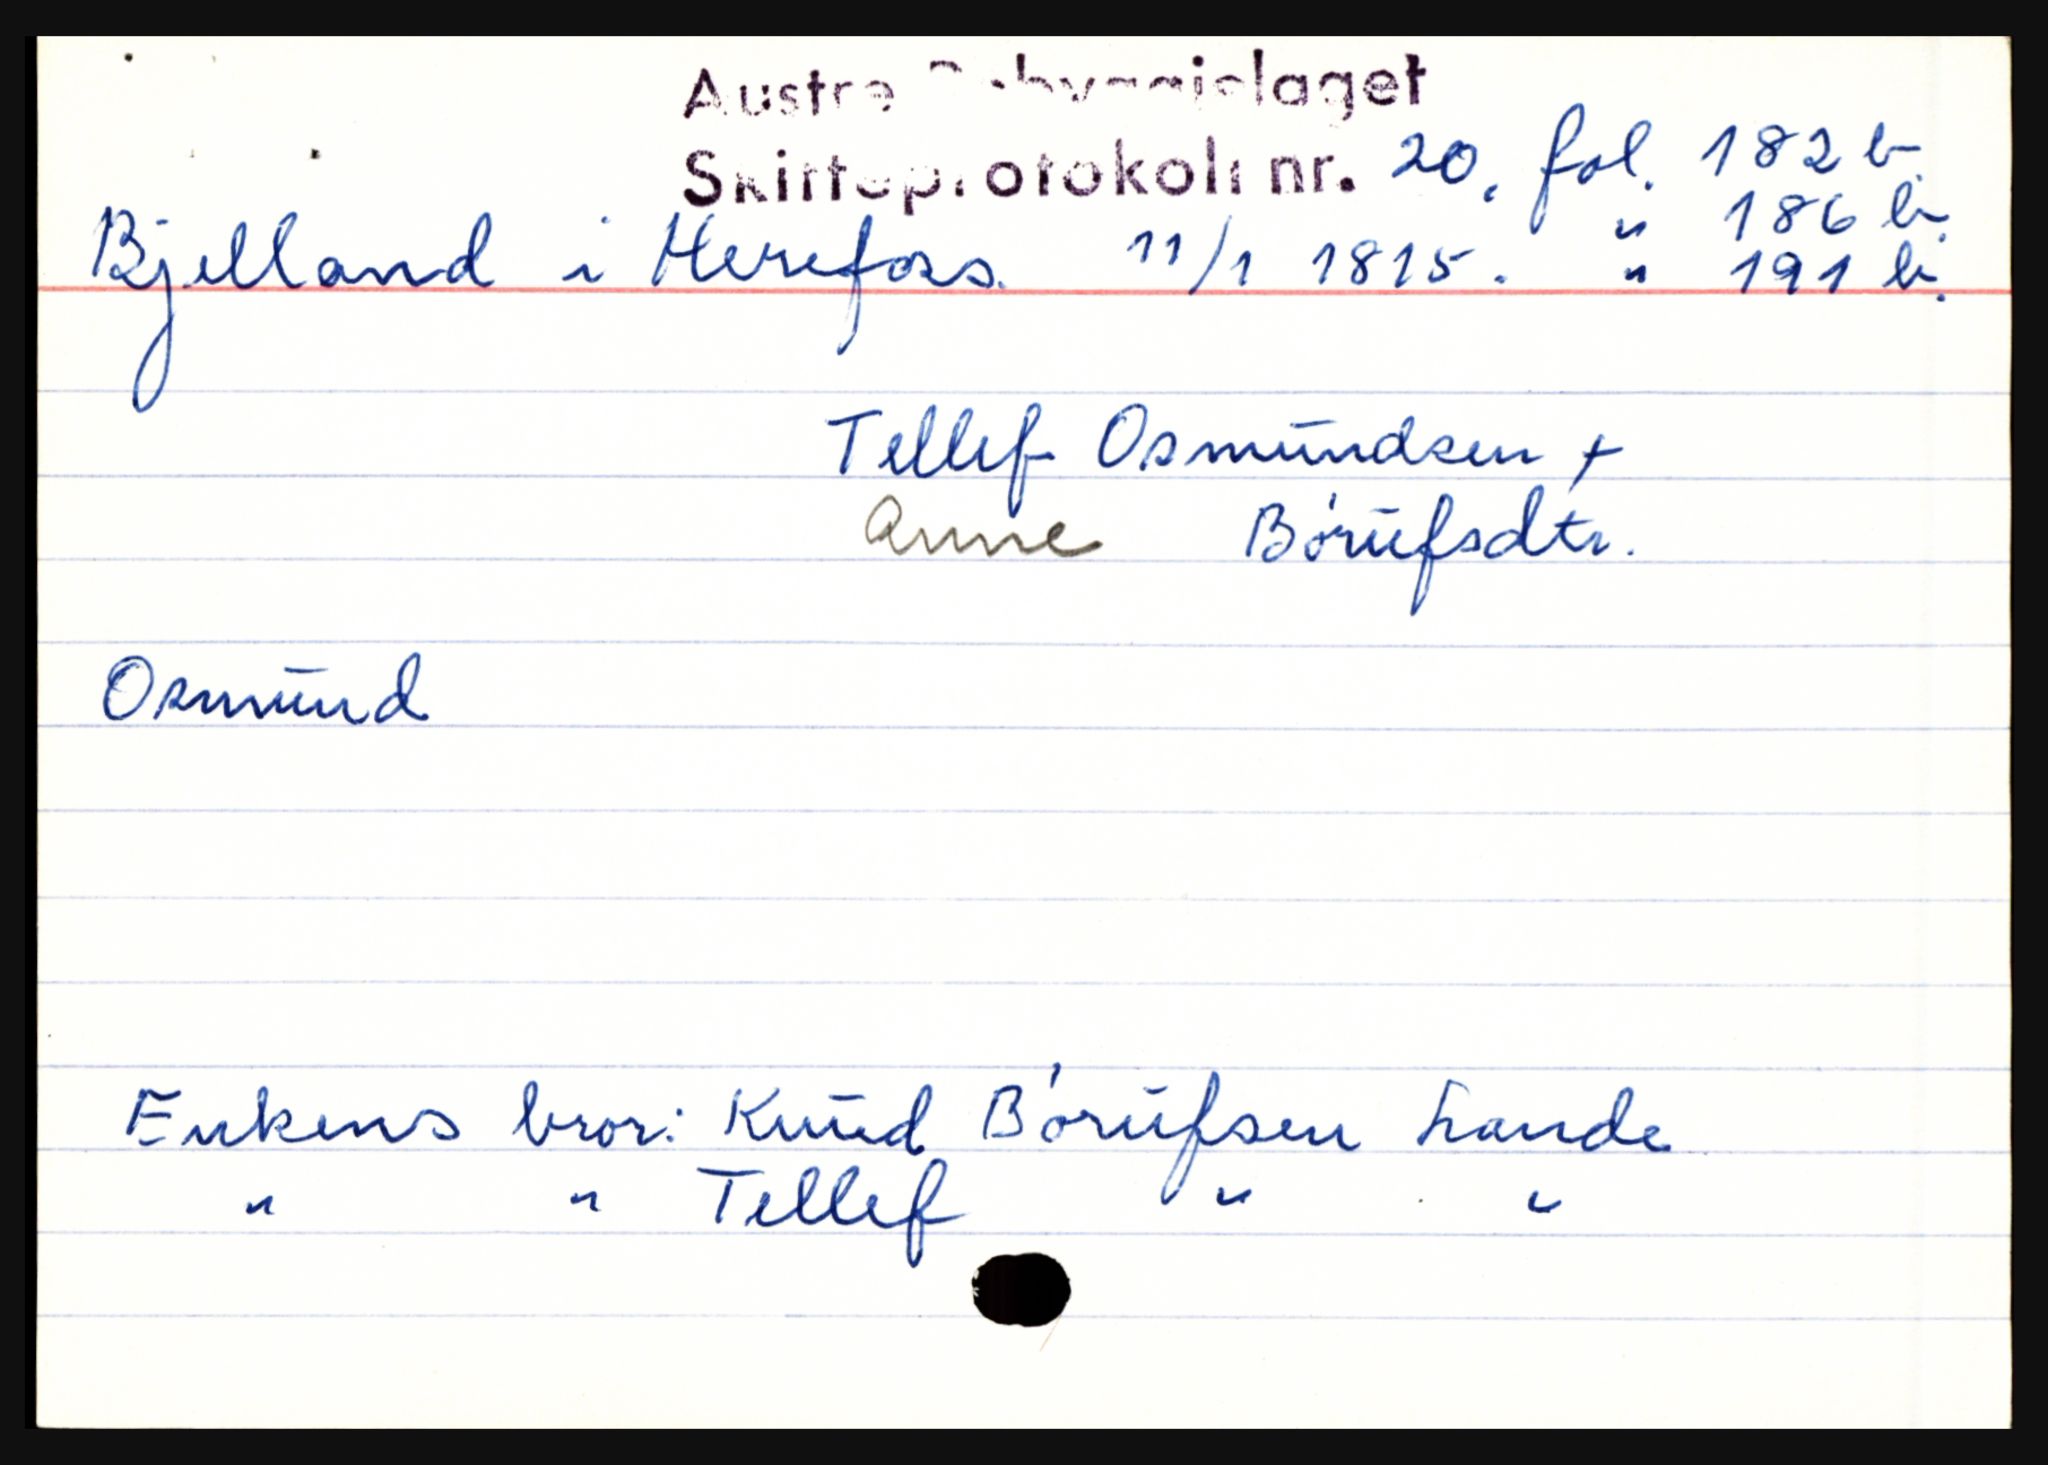 Austre Råbyggjelaget
Skifteprotokoll nr. 20. fol. 182 b.
" 186 b.
Bjelland i Herefoss. 11/1 1815. " 191 b.
Tellef Osmundsen +
Anne Børufsdtr.
Osmund
Enkens bror: Knud Børufsen Lande
" " Tellef " "